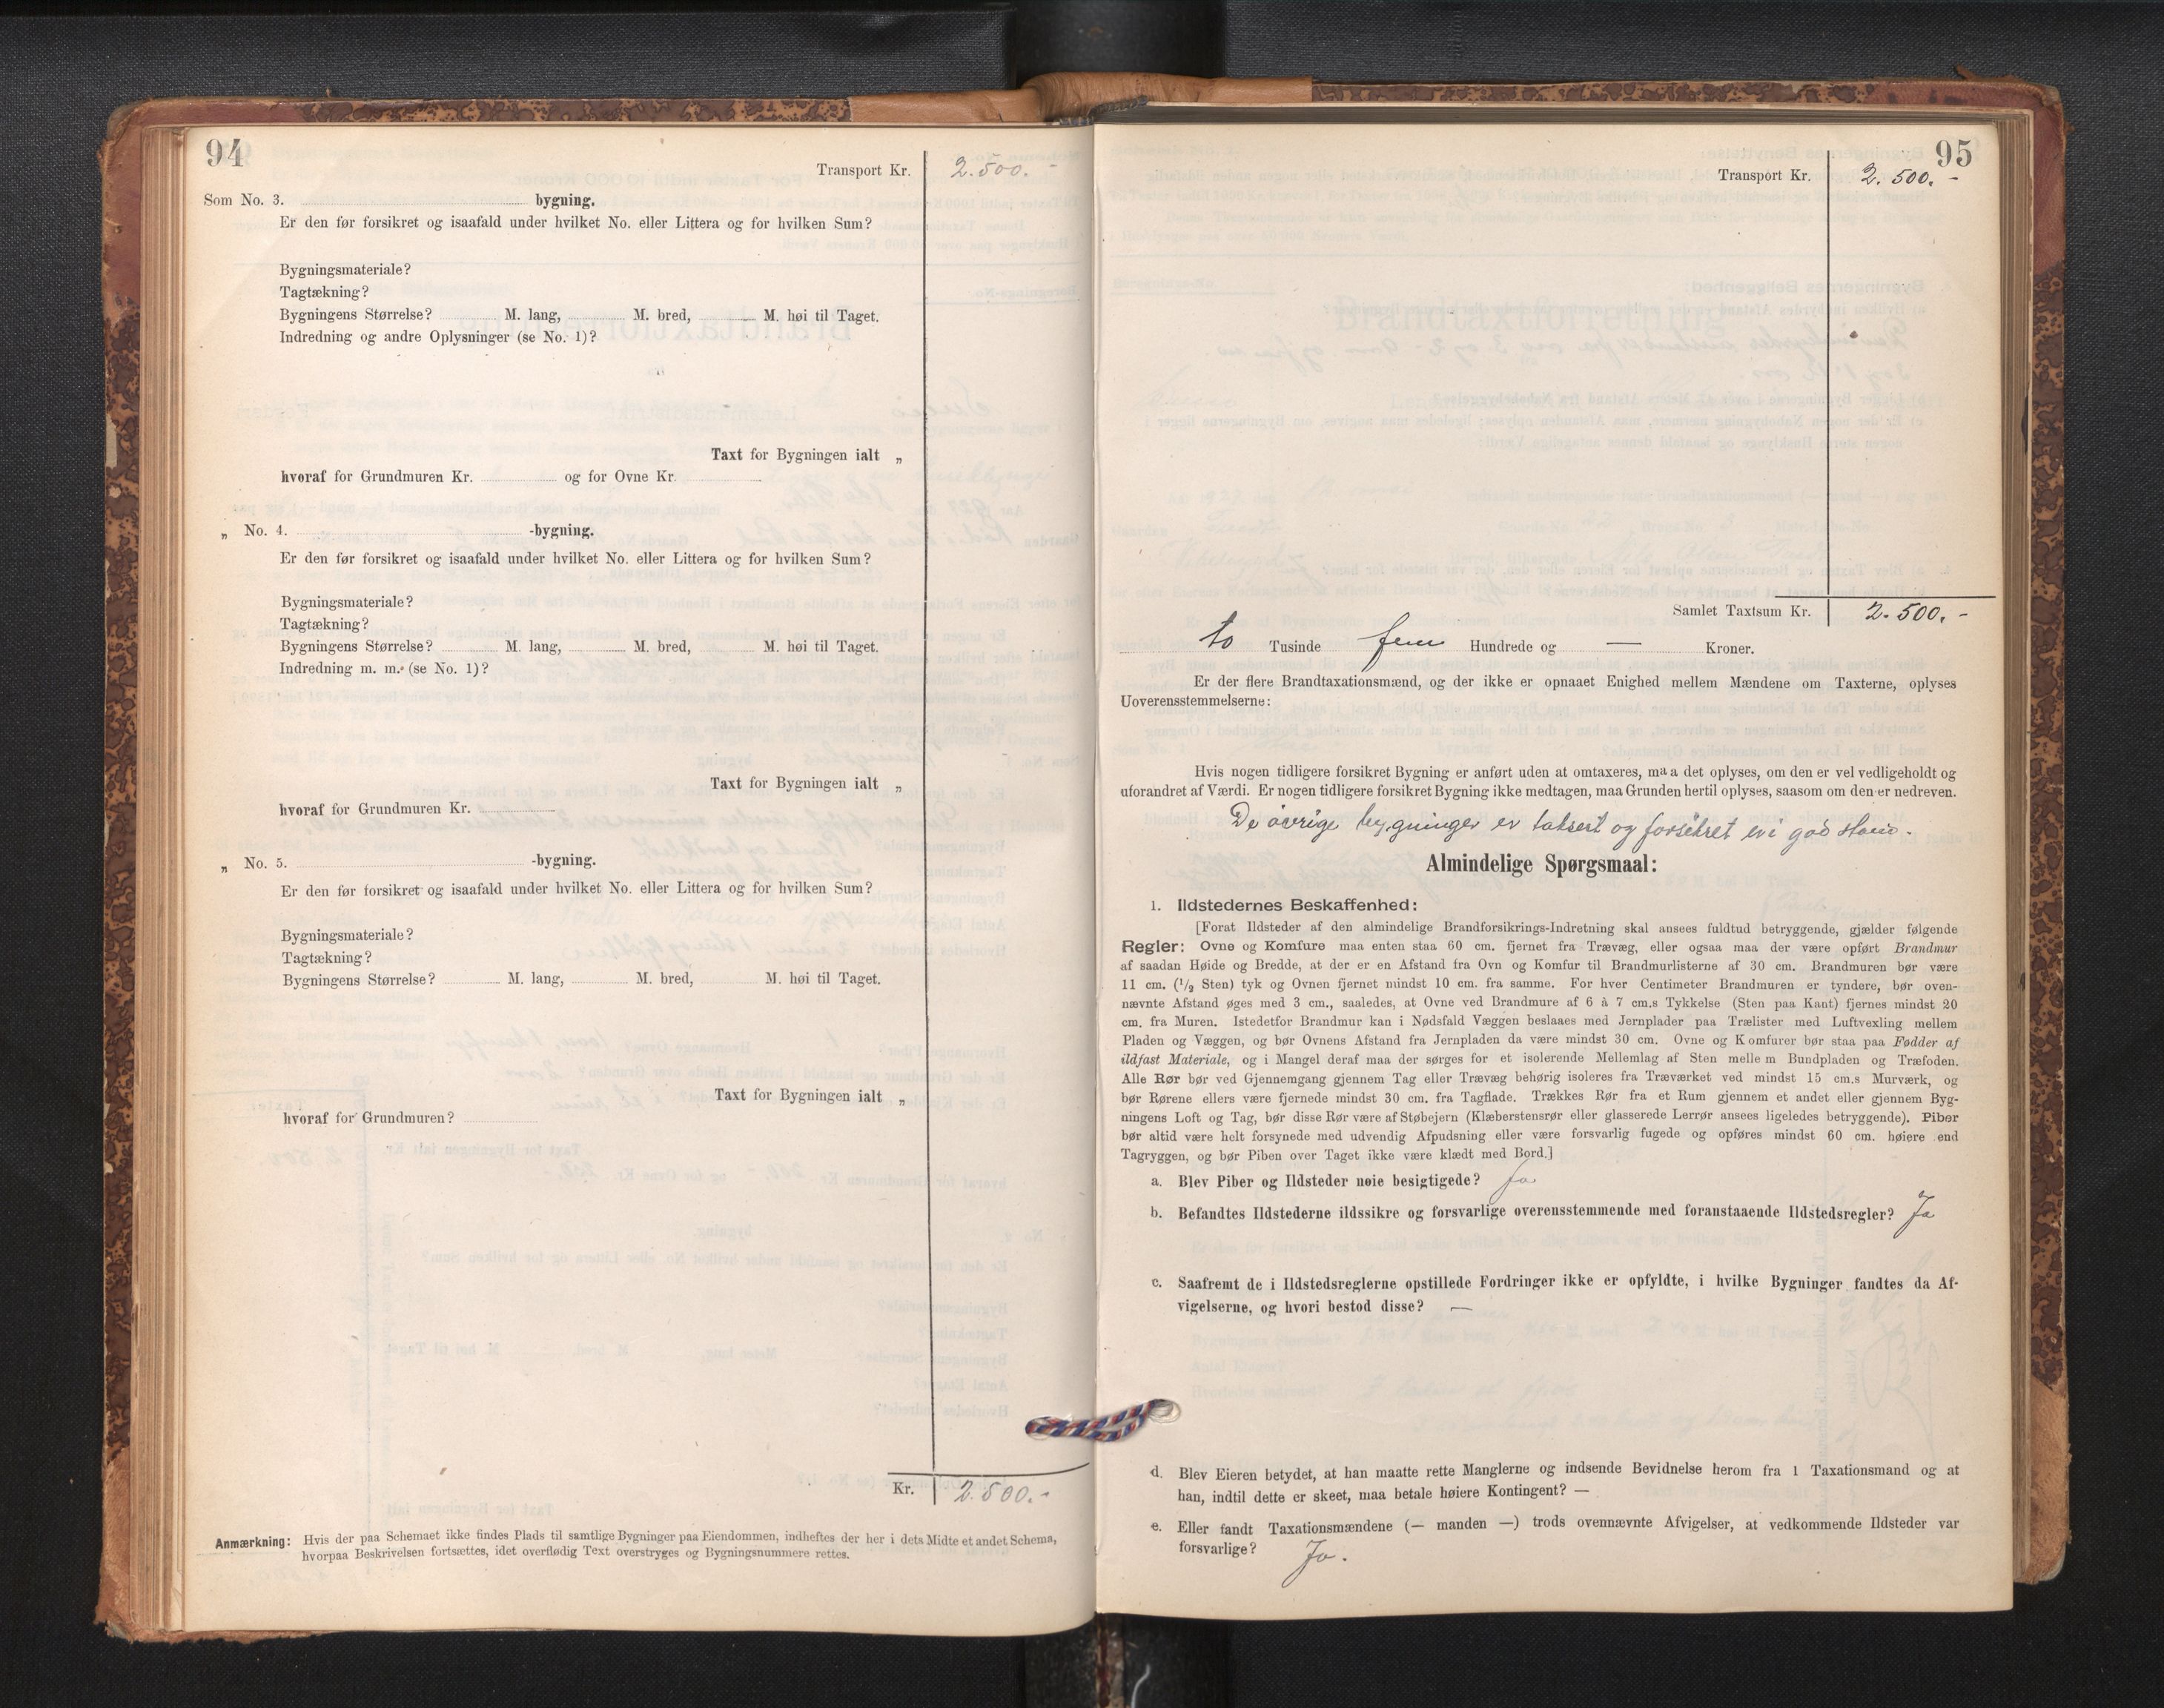 94
Transport Kr. 2.500.-
Som No. 3. bygning.
Er den før forsikret og isaafald under hvilket No. eller Littera og for hvilken Sum?
Bygningsmateriale?
Tagtækning?
Bygningens Størrelse? M. lang, M. bred, M. høi til Taget.
Indredning og andre Oplysninger (se No. 1)?
Taxt for Bygningen ialt „
hvoraf for Grundmuren Kr. og for Ovne Kr.
„ No. 4. -bygning.
Er den før forsikret og isaafald under hvilket No. eller Littera og for hvilken Sum?
Bygningsmateriale?
Tagtækning?
Bygningens Størrelse? M. lang, M. bred, M. høi til Taget.
Indredning m. m. (se No. 1)?
Taxt for Bygningen ialt „
hvoraf for Grundmuren Kr.
„ No. 5. -bygning.
Er den før forsikret og isaafald under hvilket No. eller Littera og for hvilken Sum?
Bygningsmateriale?
Tagtækning?
Bygningens Størrelse? M. lang, M. bred, M. høi til Taget.
Taxt for Bygningen ialt „
hvoraf for Grundmuren?
Kr. 2.500.-
Anmærkning: Hvis der paa Schemaet ikke findes Plads til samtlige Bygninger paa Eiendommen, indheftes der her i dets Midte et andet Schema,
hvorpaa Beskrivelsen fortsættes, idet overflødig Text overstryges og Bygningsnummere rettes.
95
Transport Kr. 2.500.-
Samlet Taxtsum Kr. 2.500.-
to Tusinde fem Hundrede og — Kroner.
Er der flere Brandtaxationsmænd, og der ikke er opnaaet Enighed mellem Mændene om Taxterne, oplyses
Uoverensstemmelserne:
Hvis nogen tidligere forsikret Bygning er anført uden at omtaxeres, maa det oplyses, om den er vel vedligeholdt og
uforandret af Værdi. Er nogen tidligere forsikret Bygning ikke medtagen, maa Grunden hertil oplyses, saasom om den er nedreven.
De øvrige bygninger er taksert og forsikret er i god stand.
Almindelige Spørgsmaal:
1. Ildstedernes Beskaffenhed:
[Forat Ildsteder af den almindelige Brandforsikrings-Indretning skal ansees fuldtud betryggende, gjælder følgende
Regler: Ovne og Komfure maa enten staa 60 cm. fjernet fra Trævæg, eller ogsaa maa der være opført Brandmur
af saadan Høide og Bredde, at der er en Afstand fra Ovn og Komfur til Brandmurlisterne af 30 cm. Brandmuren bør være
11 cm. (1/2 Sten) tyk og Ovnen fjernet mindst 10 cm. fra samme. For hver Centimeter Brandmuren er tyndere, bør oven-
nævnte Afstand øges med 3 cm., saaledes, at Ovne ved Brandmure af 6 à 7 cm.s Tykkelse (Sten paa Kant) fjernes mindst 20
cm. fra Muren. Istedetfor Brandmur kan i Nødsfald Væggen beslaaes med Jernplader paa Trælister med Luftvexling mellem
Pladen og Væggen, og bør Ovnens Afstand fra Jernpladen da være mindst 30 cm. Ovne og Komfurer bør staa paa Fødder af
ildfast Materiale, og i Mangel deraf maa der sørges for et isolerende Mellemlag af Sten mellem Bundpladen og Træfoden.
Alle Rør bør ved Gjennemgang gjennem Tag eller Trævæg behørig isoleres fra Træværket ved mindst 15 cm.s Murværk, og
bør Rørene ellers være fjernede mindst 30 cm. fra Tagflade. Trækkes Rør fra et Rum gjennem et andet eller gjennem Byg-
ningens Loft og Tag, bør disse Rør være af Støbejern (Klæberstensrør eller glasserede Lerrør ansees ligeledes betryggende). Piber
bør altid være helt forsynede med udvendig Afpudsning eller være forsvarlig fugede og opføres mindst 60 cm. høiere end
Tagryggen, og bør Piben over Taget ikke være klædt med Bord.]
a. Blev Piber og Ildsteder nøie besigtigede? Ja
b. Befandtes Ildstederne ildssikre og forsvarlige overensstemmende med foranstaaende Ildstedsregler? Ja
c. Saafremt de i Ildstedsreglerne opstillede Fordringer ikke er opfyldte, i hvilke Bygninger fandtes da Af-
vigelserne, og hvori bestod disse? —
d. Blev Eieren betydet, at han maatte rette Manglerne og indsende Bevidnelse herom fra 1 Taxationsmand og at
han, indtil dette er skeet, maa betale høiere Kontingent? —
e. Eller fandt Taxationsmændene (— manden —) trods ovennævnte Afvigelser, at vedkommende Ildsteder var
forsvarlige? Ja.